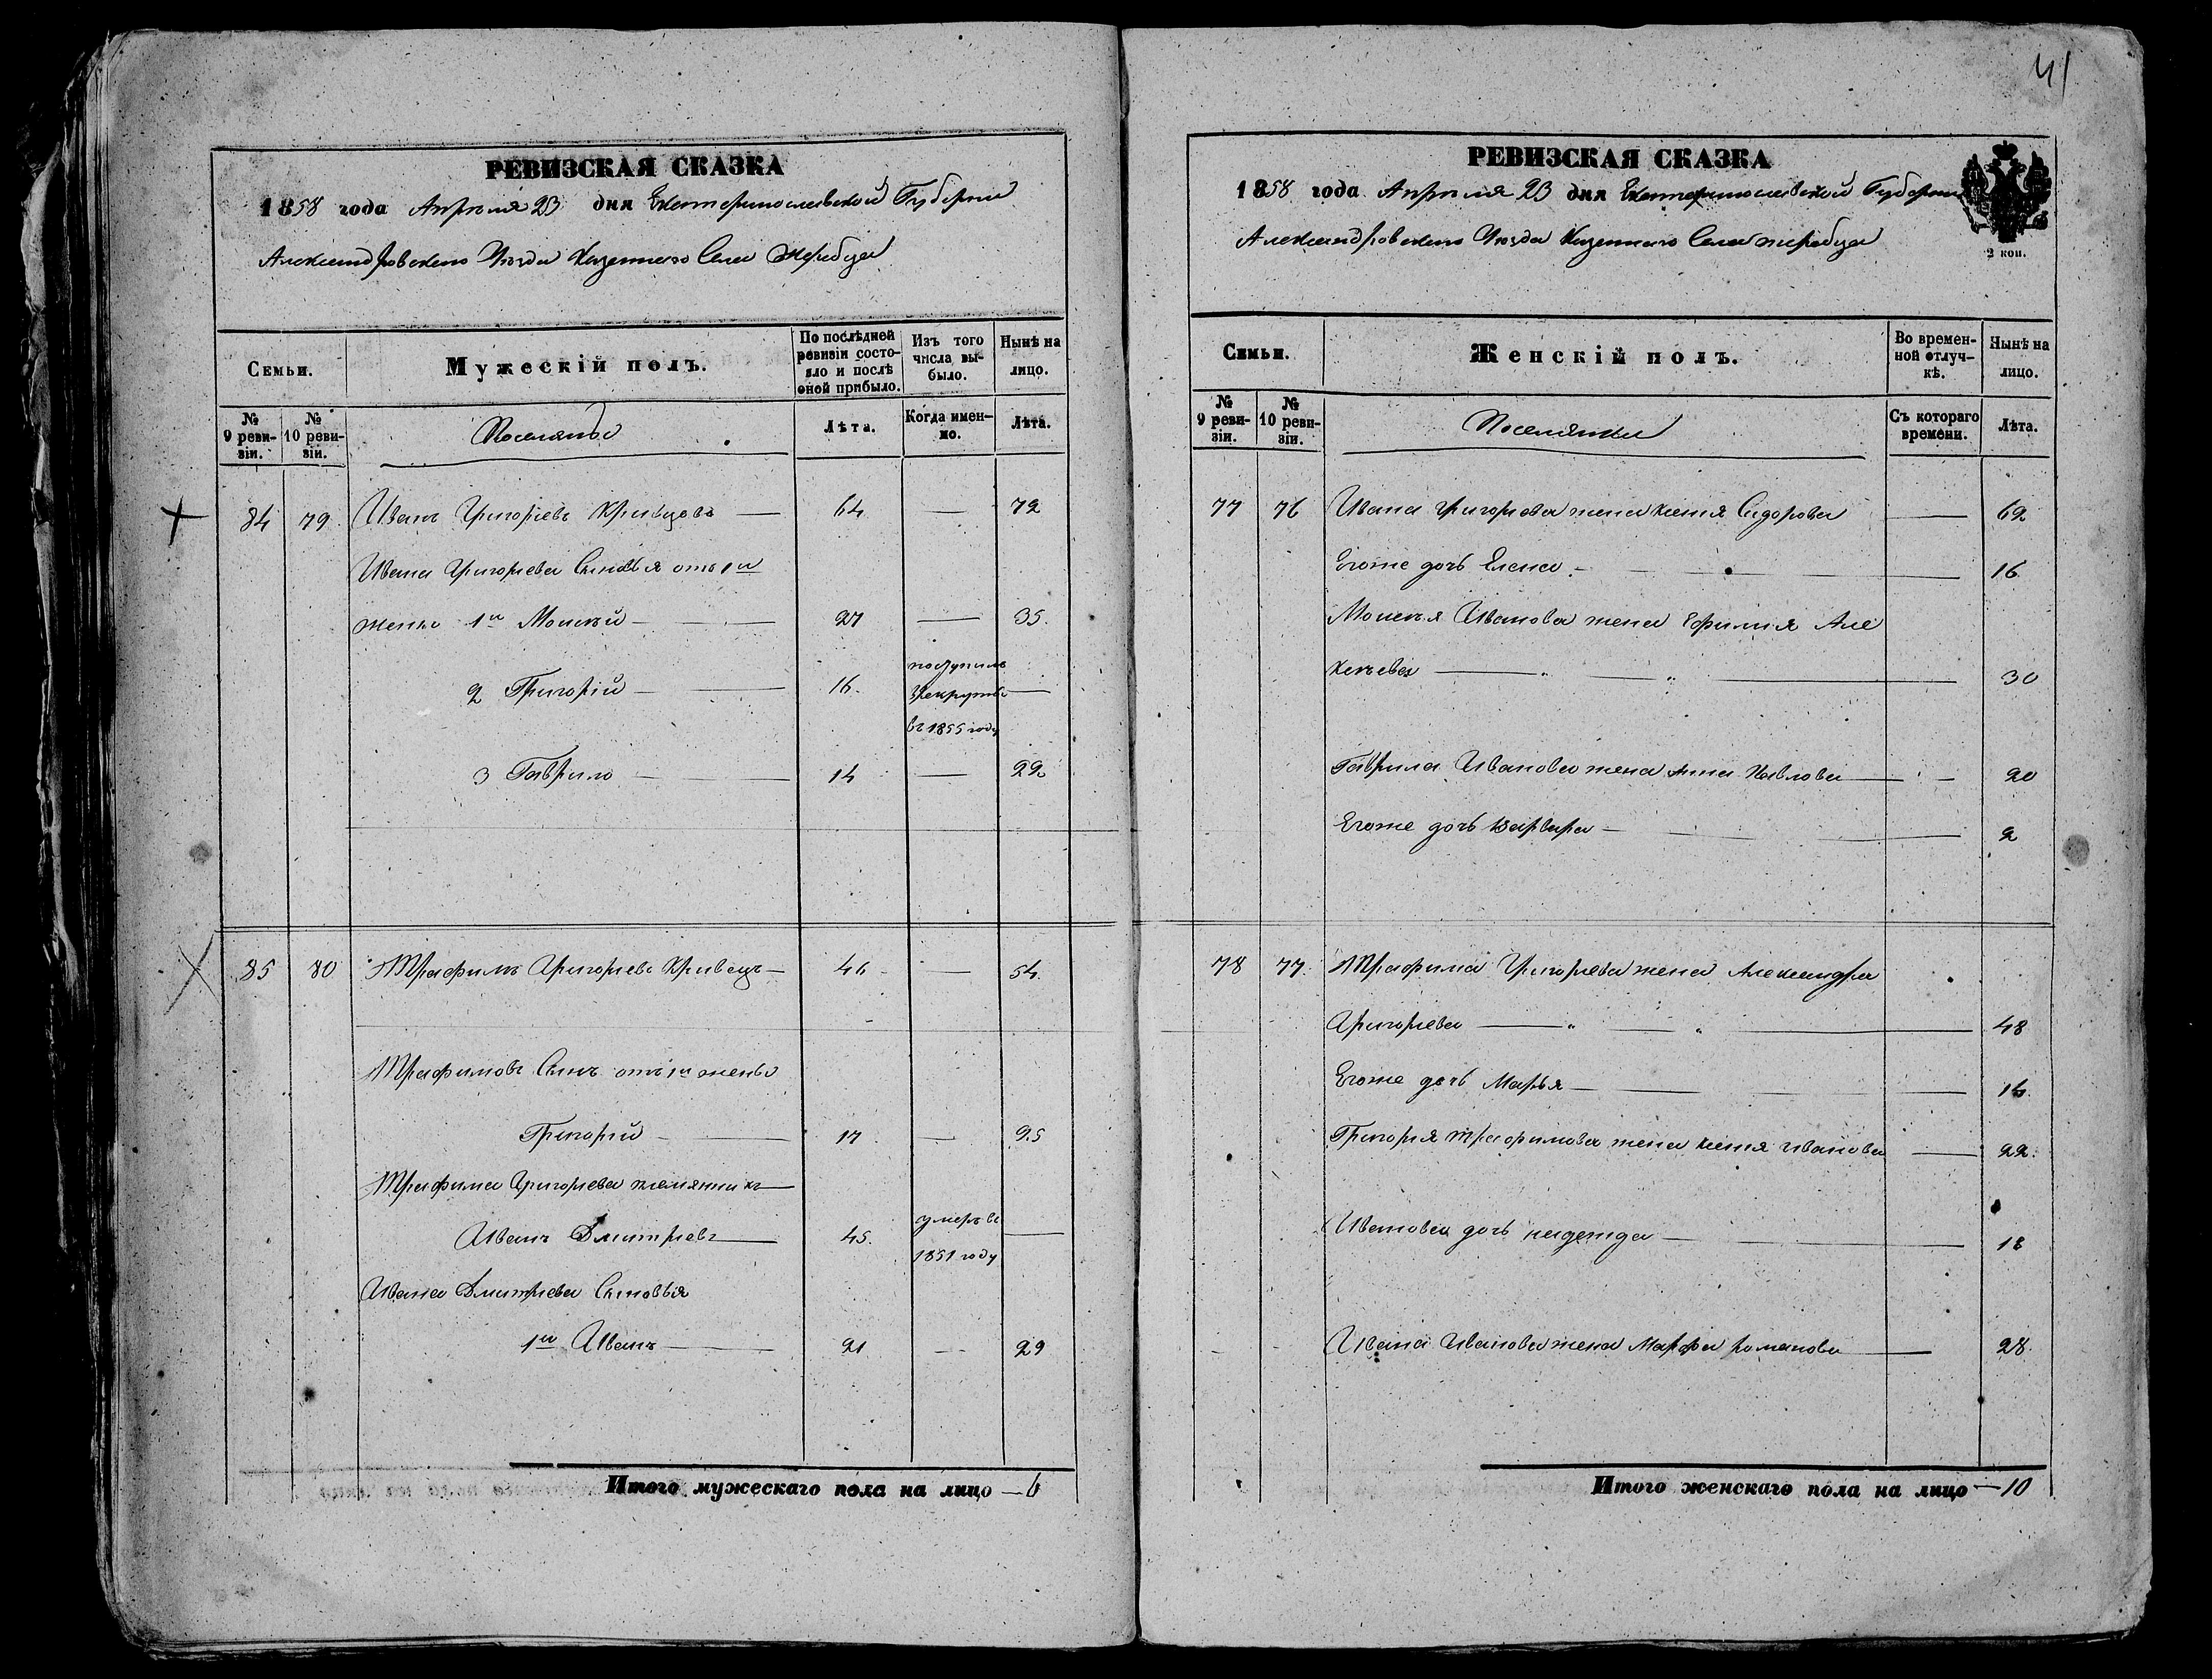 РЕВИЗСКАЯ СКАЗКА
1858 года Апрѣля 23 дня Екатеринославской Губерніи
Александровского Уѣзда Казенного Села Жеребца
Семьи.
Мужескій полъ.
По послѣдней ревизіи состояло и послѣ оной прибыло.
Изъ того числа выбыло.
Нынѣ на лицо.
№ 9 ревизіи.
№ 10 ревизіи.
Поселяне
Лѣта.
Когда именно.
Лѣта.
84 79 Иванъ Григорьевъ Кривцовъ — 64 — 72
Ивана Григорьева Сыновья отъ 1й
жены 1й Моисѣй — 27 — 35.
2 Григорій — 16. поступилъ
врекруты —
въ 1855 году
3 Гаврило — 14 — 22
85 80 Трафимъ Григорьевъ Кривецъ — 46 — 54.
Трафимовъ Сынъ отъ 1й жены
Григорій — 17 — 25
Трафима Григорьева племянникъ —
Иванъ Дмитріевъ — 45. умеръ въ —
1851 году
Ивана Дмитріева Сыновья
1й Иванъ — 21 — 29
Итого мужескаго пола на лицо — 6
41
РЕВИЗСКАЯ СКАЗКА
1858 года Апрѣля 23 дня Екатеринославской Губерніи
Александровского Уѣзда Казенного Села Жеребца
2 коп.
Семьи.
Женскій полъ.
Во временной отлучкѣ.
Нынѣ на лицо.
№ 9 ревизіи.
№ 10 ревизіи.
Поселянки
Съ котораго времени.
Лѣта.
77 76 Ивана Григорьева жена Ксенія Сидорова — 62
Егоже дочь Елена — 16
Моисѣя Иванова жена Ефимія Але
ксѣева — 30
Гаврила Иванова жена Анна Павлова — 20
Егоже дочь Варвара — 2
78 77 Трафима Григорьева жена Александра
Григорьева — 48
Егоже дочь Марья — 16
Григорія Трафимова жена Ксенія Иванова — 22.
Иванова дочь Надежда — 18
Ивана Иванова жена Марфа Романова — 28.
Итого женскаго пола на лицо — 10